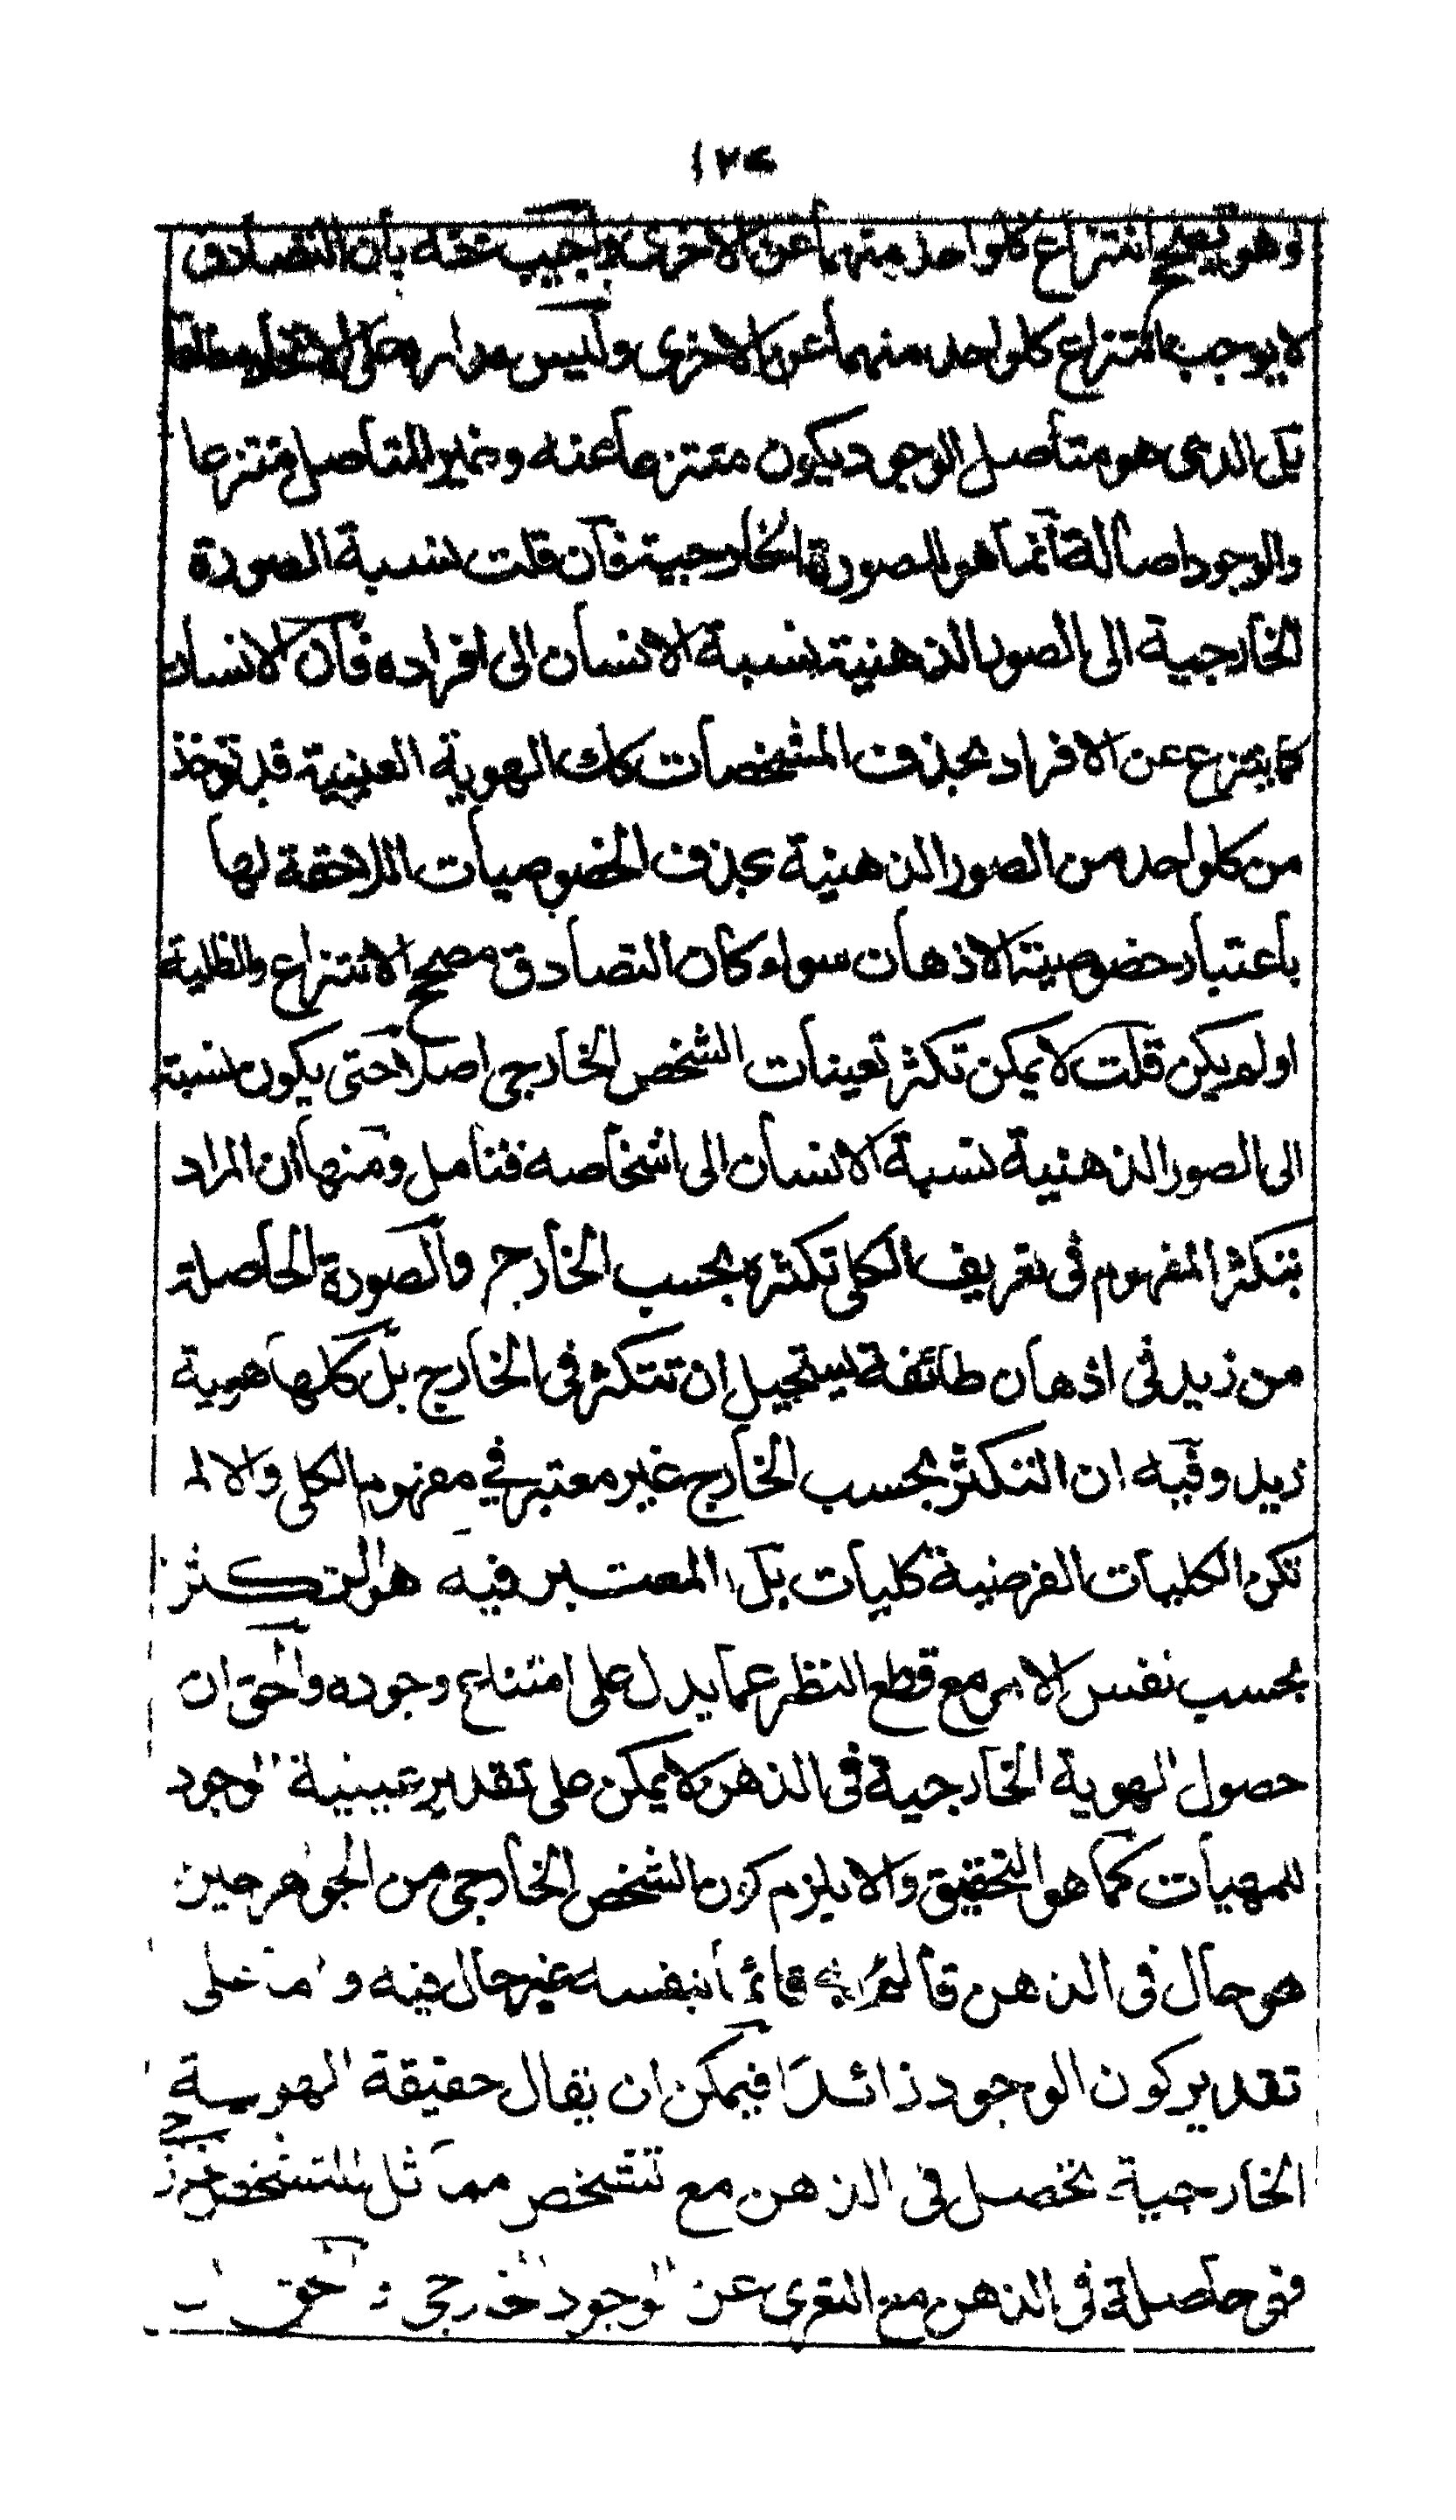 ١٧٤
وهو يصحح انتزاع كلواحد منهما عن الاخرى واجيب عنه بان التصادق
لا يوجب انتزاع كلواحد منهما عن الاخرى وليس مداره على الاتحاد مطلقا
بل الذى هو متأصل الوجود يكون منتزعا عنه وغير المتأصل منتزعا
والوجود اصالة انما هو للصورة الخارجية فان قلت نسبة الصورة
الخارجية الى الصور الذهنية نسبة الانسان الى افراده فان الانسان
كما ينتزع عن الافراد بحذف المشخصات كك الهوية العينية قد توخذ
من كلواحد من الصور الذهنية بحذف الخصوصيات اللاحقة لها
باعتبار خصوصية الاذهان سواء كان التصادق مصحح الانتزاع والظلية
او لم يكن قلت لا يمكن تكثر تعينات الشخص الخارجى اصلا حتى يكون نسبته
الى الصور الذهنية نسبة الانسان الى اشخاصه فتأمل ومنها ان المراد
بتكثر المفهوم فى تعريف الكلى تكثره بحسب الخارج والصورة الحاصلة
من زيد فى اذهان طائفة يستحيل ان تتكثر فى الخارج بل كلها هوية
زيد وفيه ان التكثر بحسب الخارج غير معتبر في مفهوم الكلى والا لم
تكن الكليات الفرضية كليات بل المعتبر فيه هو التكثر
بحسب نفس الامر مع قطع النظر عما يدل على امتناع وجوده والحق ان
حصول الهوية الخارجية فى الذهن لا يمكن على تقدير عينية الوجود
للمهيات كما هو التحقيق والا يلزم كون الشخص الخارجى من الجوهر حين
هو حال فى الذهن قائم به قائما بنفسه غير حال فيه واما على
تقدير كون الوجود زائدا فيمكن ان يقال حقيقة الهوية
الخارجية تحصل فى الذهن مع تشخص مماثل للتشخص الخارجى
فهى حاصلة فى الذهن مع التعرى عن الوجود الخارجى والحق